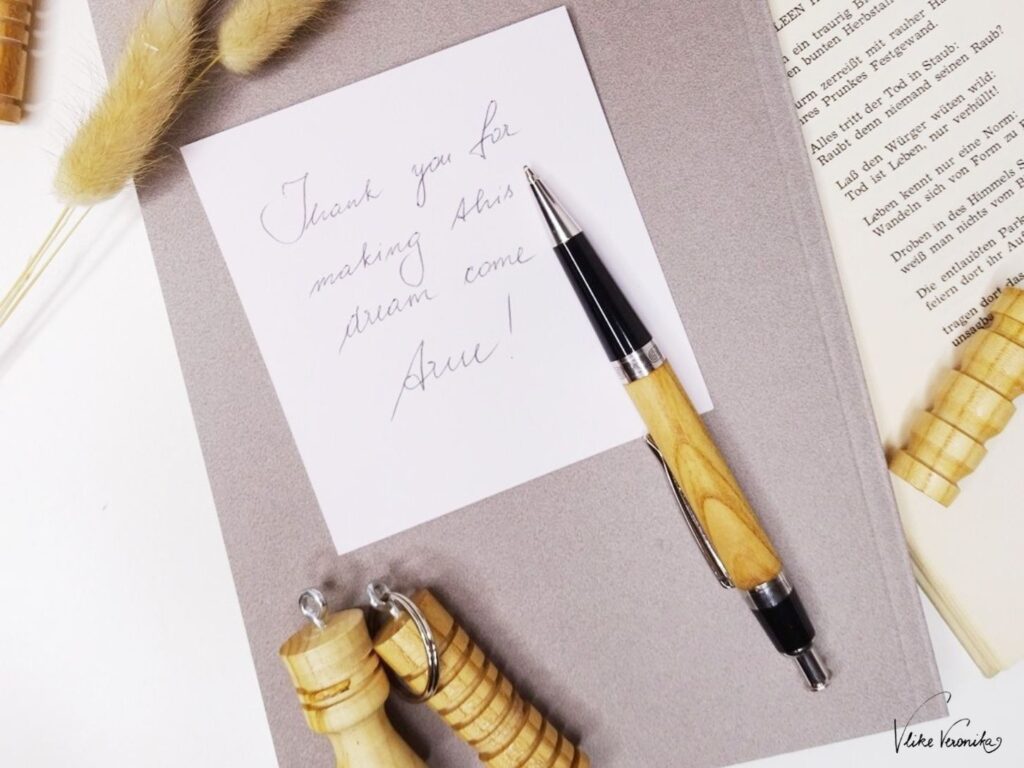 Thank you for
making this
dream come
true!
LEEN H
ein traurig B
en bunten Herbstlan
urm zerreißt mit rauher Ha
res Prunkes Festgewand.
Alles tritt der Tod in Staub:
Raubt denn niemand seinen Raub?
Laß den Würger wüten wild:
Tod ist Leben, nur verhüllt!
Leben kennt nur eine Norm:
Wandeln sich von Form zu
Droben in des Himmels S
weiß man nichts vom B
Die entlaubten Park
feiern dort ihr Auf
tragen dort das
unsagba
Vlike Veronika